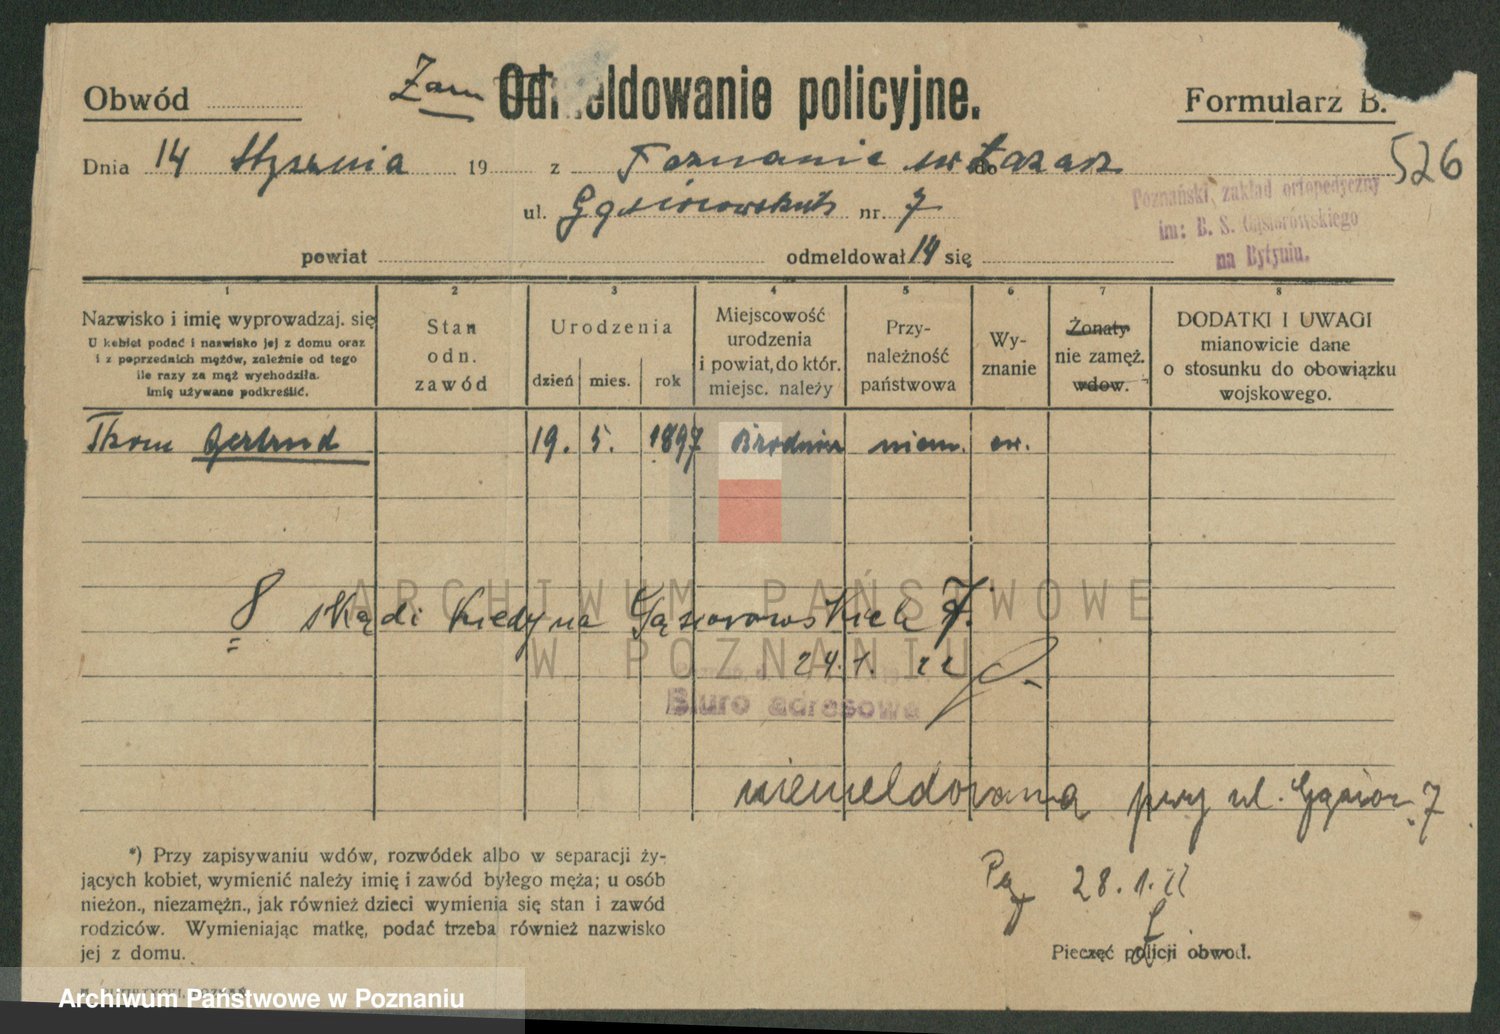 Obwód
Zam Odmeldowanie policyjne.
Formularz B.
526
Dnia 14 Stycznia 19 z Poznania św Łazarz do
ul. Gąsiorowskich nr. 7
powiat odmeldował 14 się
Poznański zakład ortopedyczny
im: B. S. Gąsiorowskiego
na Bytyniu.
1 2 3 4 5 6 7 8
Nazwisko i imię wyprowadzaj. się
U kobiet podać i nazwisko jej z domu oraz
i z poprzednich mężów, zależnie od tego
ile razy za mąż wychodziła.
Imię używane podkreślić.
Stan
odn.
zawód
Urodzenia
dzień mies. rok
Miejscowość
urodzenia
i powiat, do któr.
miejsc. należy
Przy-
należność
państwowa
Wy-
znanie
Żonaty
nie zamęż.
wdow.
DODATKI I UWAGI
mianowicie dane
o stosunku do obowiązku
wojskowego.
Thom Gertrud 19. 5. 1897 Brodnica niem. ew.
8 skądi kiedy na Gąsiorowskich 7.
24. 1. 22
Biuro adresowe
niemeldowana przy ul. Gąsior. 7
28. 1. 22
*) Przy zapisywaniu wdów, rozwódek albo w separacji ży-
jących kobiet, wymienić należy imię i zawód byłego męża; u osób
nieżon., niezamężn., jak również dzieci wymienia się stan i zawód
rodziców. Wymieniając matkę, podać trzeba również nazwisko
jej z domu.
Pieczęć policji obwod.
ARCHIWUM PAŃSTWOWE
W POZNANIU
Archiwum Państwowe w Poznaniu